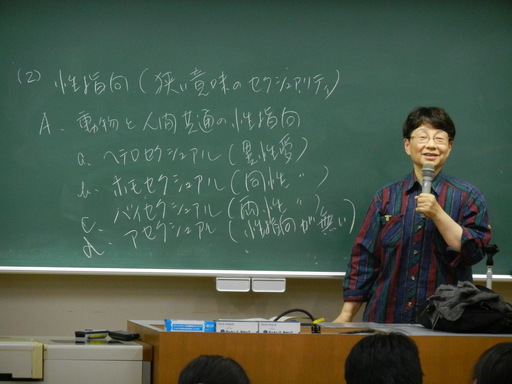 (2) 性指向(狭い意味のセクシュアリティ)
A. 動物と人間共通の性指向
a. ヘテロセクシュアル(異性愛)
b. ホモセクシュアル(同性〃)
c. バイセクシュアル(両性〃)
d. アセクシュアル(性指向が無い)